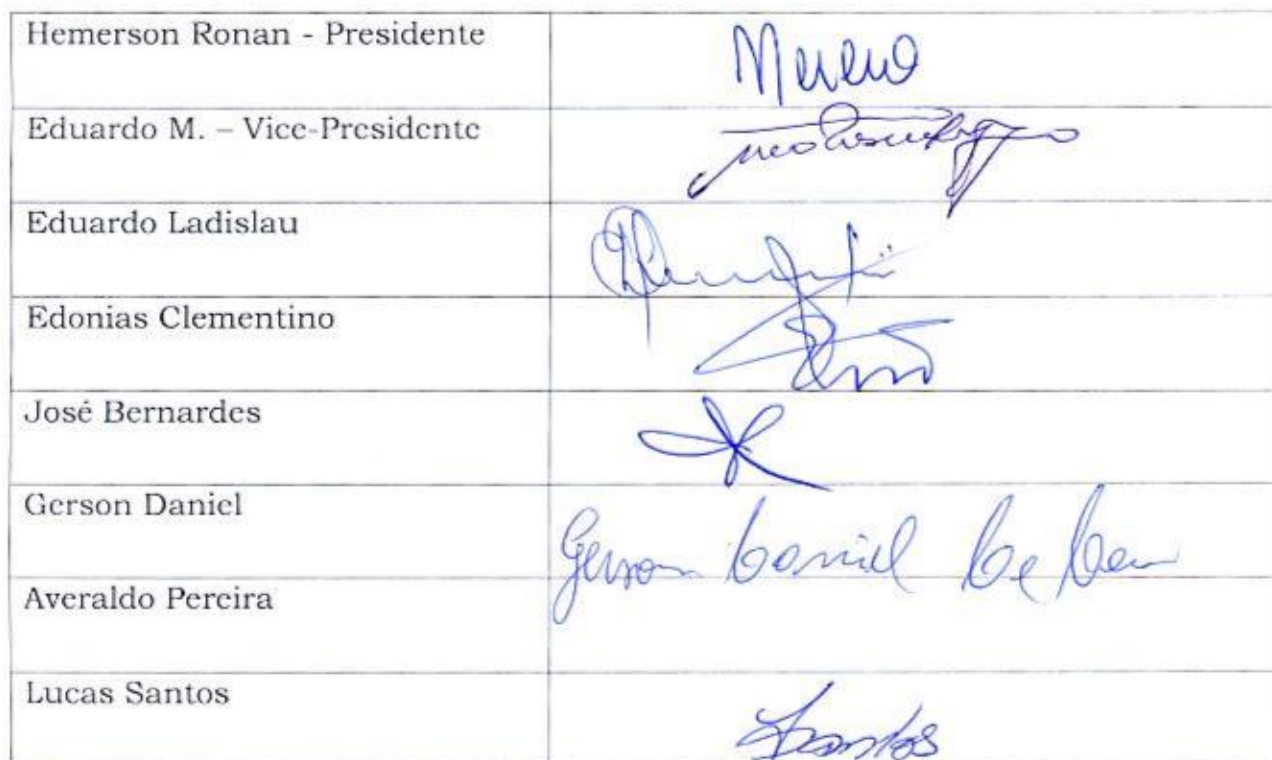 Hemerson Ronan - Presidente
Eduardo M. – Vice-Presidente
Eduardo Ladislau
Edonias Clementino
José Bernardes
Gerson Daniel
Gerson Daniel
Averaldo Pereira
Lucas Santos
Santos